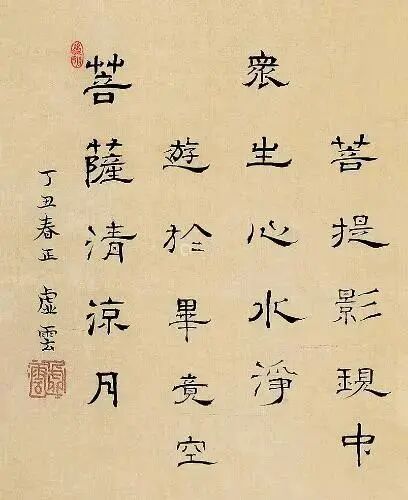 菩薩清涼月
遊於畢竟空
衆生心水淨
菩提影現中
丁丑春正 虛雲
虛雲